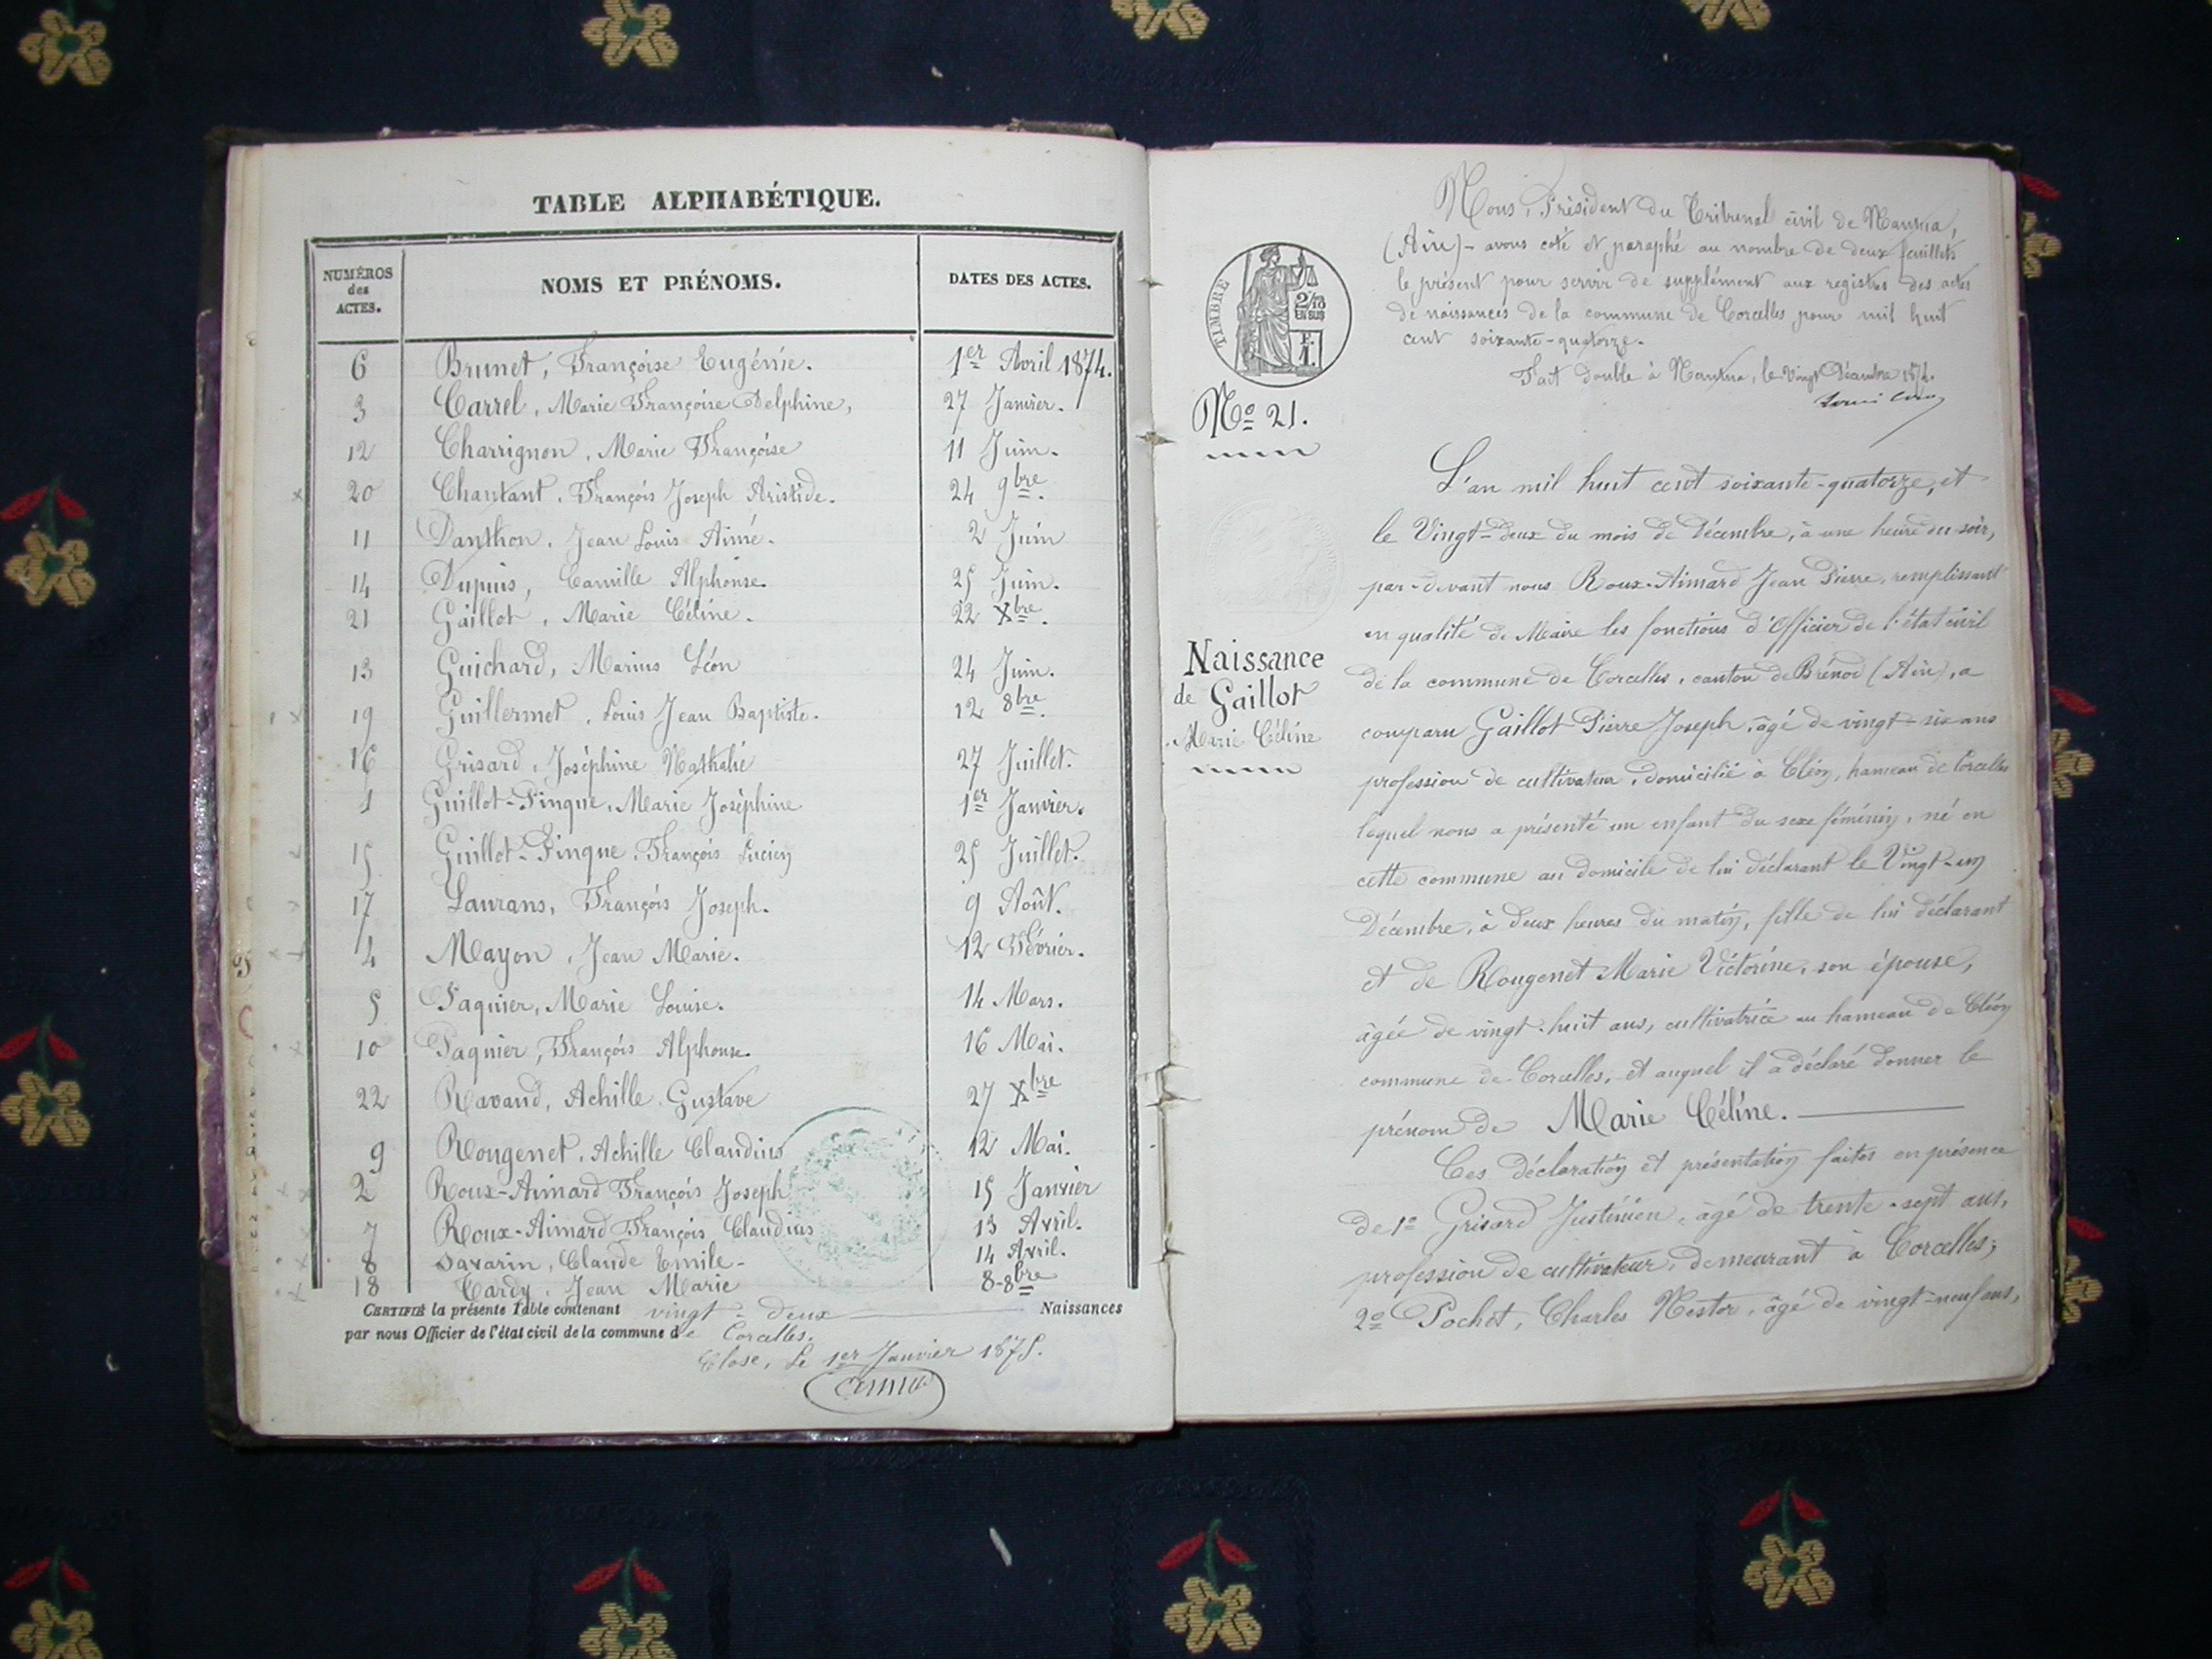 TABLE ALPHABÉTIQUE.
NUMÉROS des ACTES. NOMS ET PRÉNOMS. DATES DES ACTES.
6 Brunet, Françoise Eugénie. 1er Avril 1874.
3 Carrel, Marie Françoise Delphine, 27 Janvier.
12 Charrignon, Marie Françoise 11 Juin.
20 Chantant, François Joseph Aristide. 24 9bre.
11 Danthon, Jean Louis Aimé. 2 Juin
14 Dupuis, Camille Alphonse. 25 Juin.
21 Gaillot, Marie Céline. 22 Xbre.
13 Guichard, Marius Léon 24 Juin.
19 Guillermet, Louis Jean Baptiste. 12 8bre.
16 Grisard, Joséphine Nathalie 27 Juillet.
1 Guillot-Pinque, Marie Joséphine 1er Janvier.
15 Guillot-Pinque, François Lucien 25 Juillet.
17 Laurans, François Joseph. 9 Août.
4 Mayon, Jean Marie. 12 Février.
5 Paquier, Marie Louise. 14 Mars.
10 Paquier, François Alphonse. 16 Mai.
22 Ravaud, Achille Gustave 27 Xbre
9 Rougenet, Achille Claudius 12 Mai.
2 Roux-Aimard François Joseph 15 Janvier
7 Roux-Aimard François Claudius 13 Avril.
8 Savarin, Claude Emile- 14 Avril.
18 Tardy, Jean Marie 8-8bre
CERTIFIÉ la présente Table contenant vingt-deux Naissances
par nous Officier de l'état civil de la commune de Corcelles.
Close, Le 1er Janvier 1875.
Nous, Président du Tribunal civil de Nantua,
(Ain) - avons coté et paraphé au nombre de deux feuillets
le présent pour servir de supplément aux registres des actes
de naissances de la commune de Corcelles pour mil huit
cent soixante-quatorze.
Fait double à Nantua, le Vingt Décembre 1874.
TIMBRE
2/10
EN SUS
F.
1.
No 21.
Naissance
de Gaillot
Marie Céline
L'an mil huit cent soixante-quatorze, et
le Vingt-deux du mois de Décembre, à une heure du soir,
par-devant nous Roux-Aimard Jean Pierre, remplissant
en qualité de Maire les fonctions d'Officier de l'état civil
de la commune de Corcelles, canton de Brénod (Ain), a
comparu Gaillot Pierre Joseph, âgé de vingt-six ans
profession de cultivateur, domicilié à Cléon, hameau de Corcelles
lequel nous a présenté un enfant du sexe féminin, né en
cette commune au domicile de lui déclarant le Vingt-un
Décembre, à deux heures du matin, fille de lui déclarant
et de Rougenet Marie Victorine, son épouse,
âgée de vingt-huit ans, cultivatrice au hameau de Cléon
commune de Corcelles, et auquel il a déclaré donner le
prénom de Marie Céline.
Ces déclaration et présentation faites en présence
de 1o Grisard Justinien, âgé de trente-sept ans,
profession de cultivateur, demeurant à Corcelles;
2o Pochet, Charles Nestor, âgé de vingt-neuf ans,